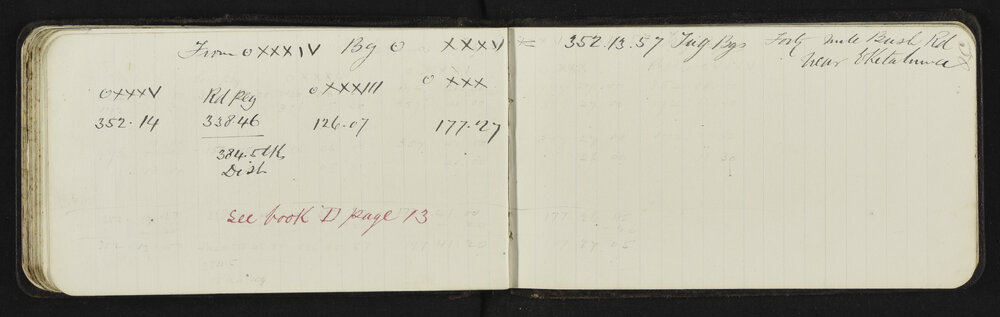 From O XXXIV Bg O XXXV = 352.13.57 Trig Bgs Forty mile Bush Rd
near Eketahuna
O XXXV Rd peg O XXXIII O XXX
352.14 338.46 126.07 177.27
384.5 lks
Dist
see book D page 13